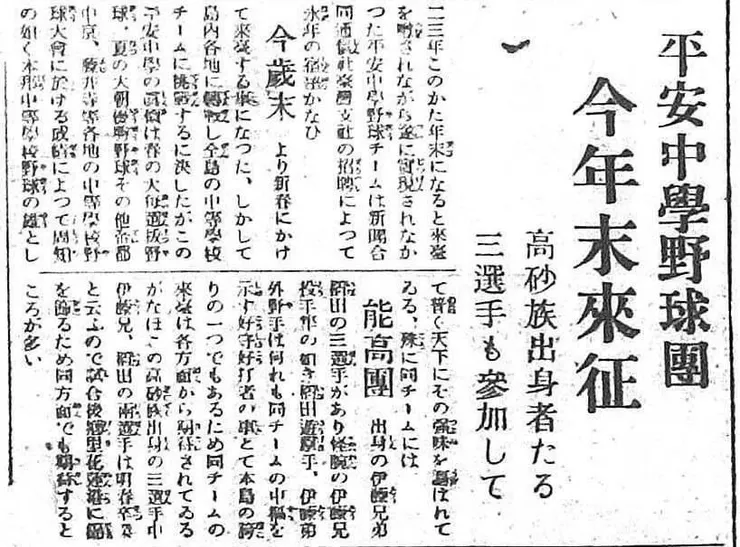 平安中學野球團
今年末來征
高砂族出身者たる
三選手も參加して
一三年このかた年末になると來臺
を噂されながら遂に實現されなか
つた平安中學野球チームは新聞合
同通信社臺灣支社の招聘によつて
永年の宿望かなひ
今歳末 より新春にかけ
て來臺する事になつた、しかして
島内各地に轉戰し全島の中等學校
チームに挑戰するに決したがこの
平安中學の眞價は春の大每選拔野
球、夏の大朝優勝野球その他京都
中京、藤井寺等各地の中等學校野
球大會に於ける成績によつて周知
の如く本邦中等學校野球の雄とし
て普く天下にその強味を謳はれて
ゐる、殊に同チームには
能高團 出身の伊藤兄弟
稻田の三選手があり怪腕の伊藤兄
投手隼の如き稻田遊擊手、伊藤弟
外野手は何れも同チームの中樞を
示す好守好打者の事とて本島の誇
りの一つでもあるため同チームの
來臺は各方面から期待されてゐる
がなほこの高砂族出身の三選手中
伊藤兄、稻田の兩選手は明春卒業
と云ふので試合後鄕里花蓮港に錦
を飾るため同方面でも期待すると
ころが多い